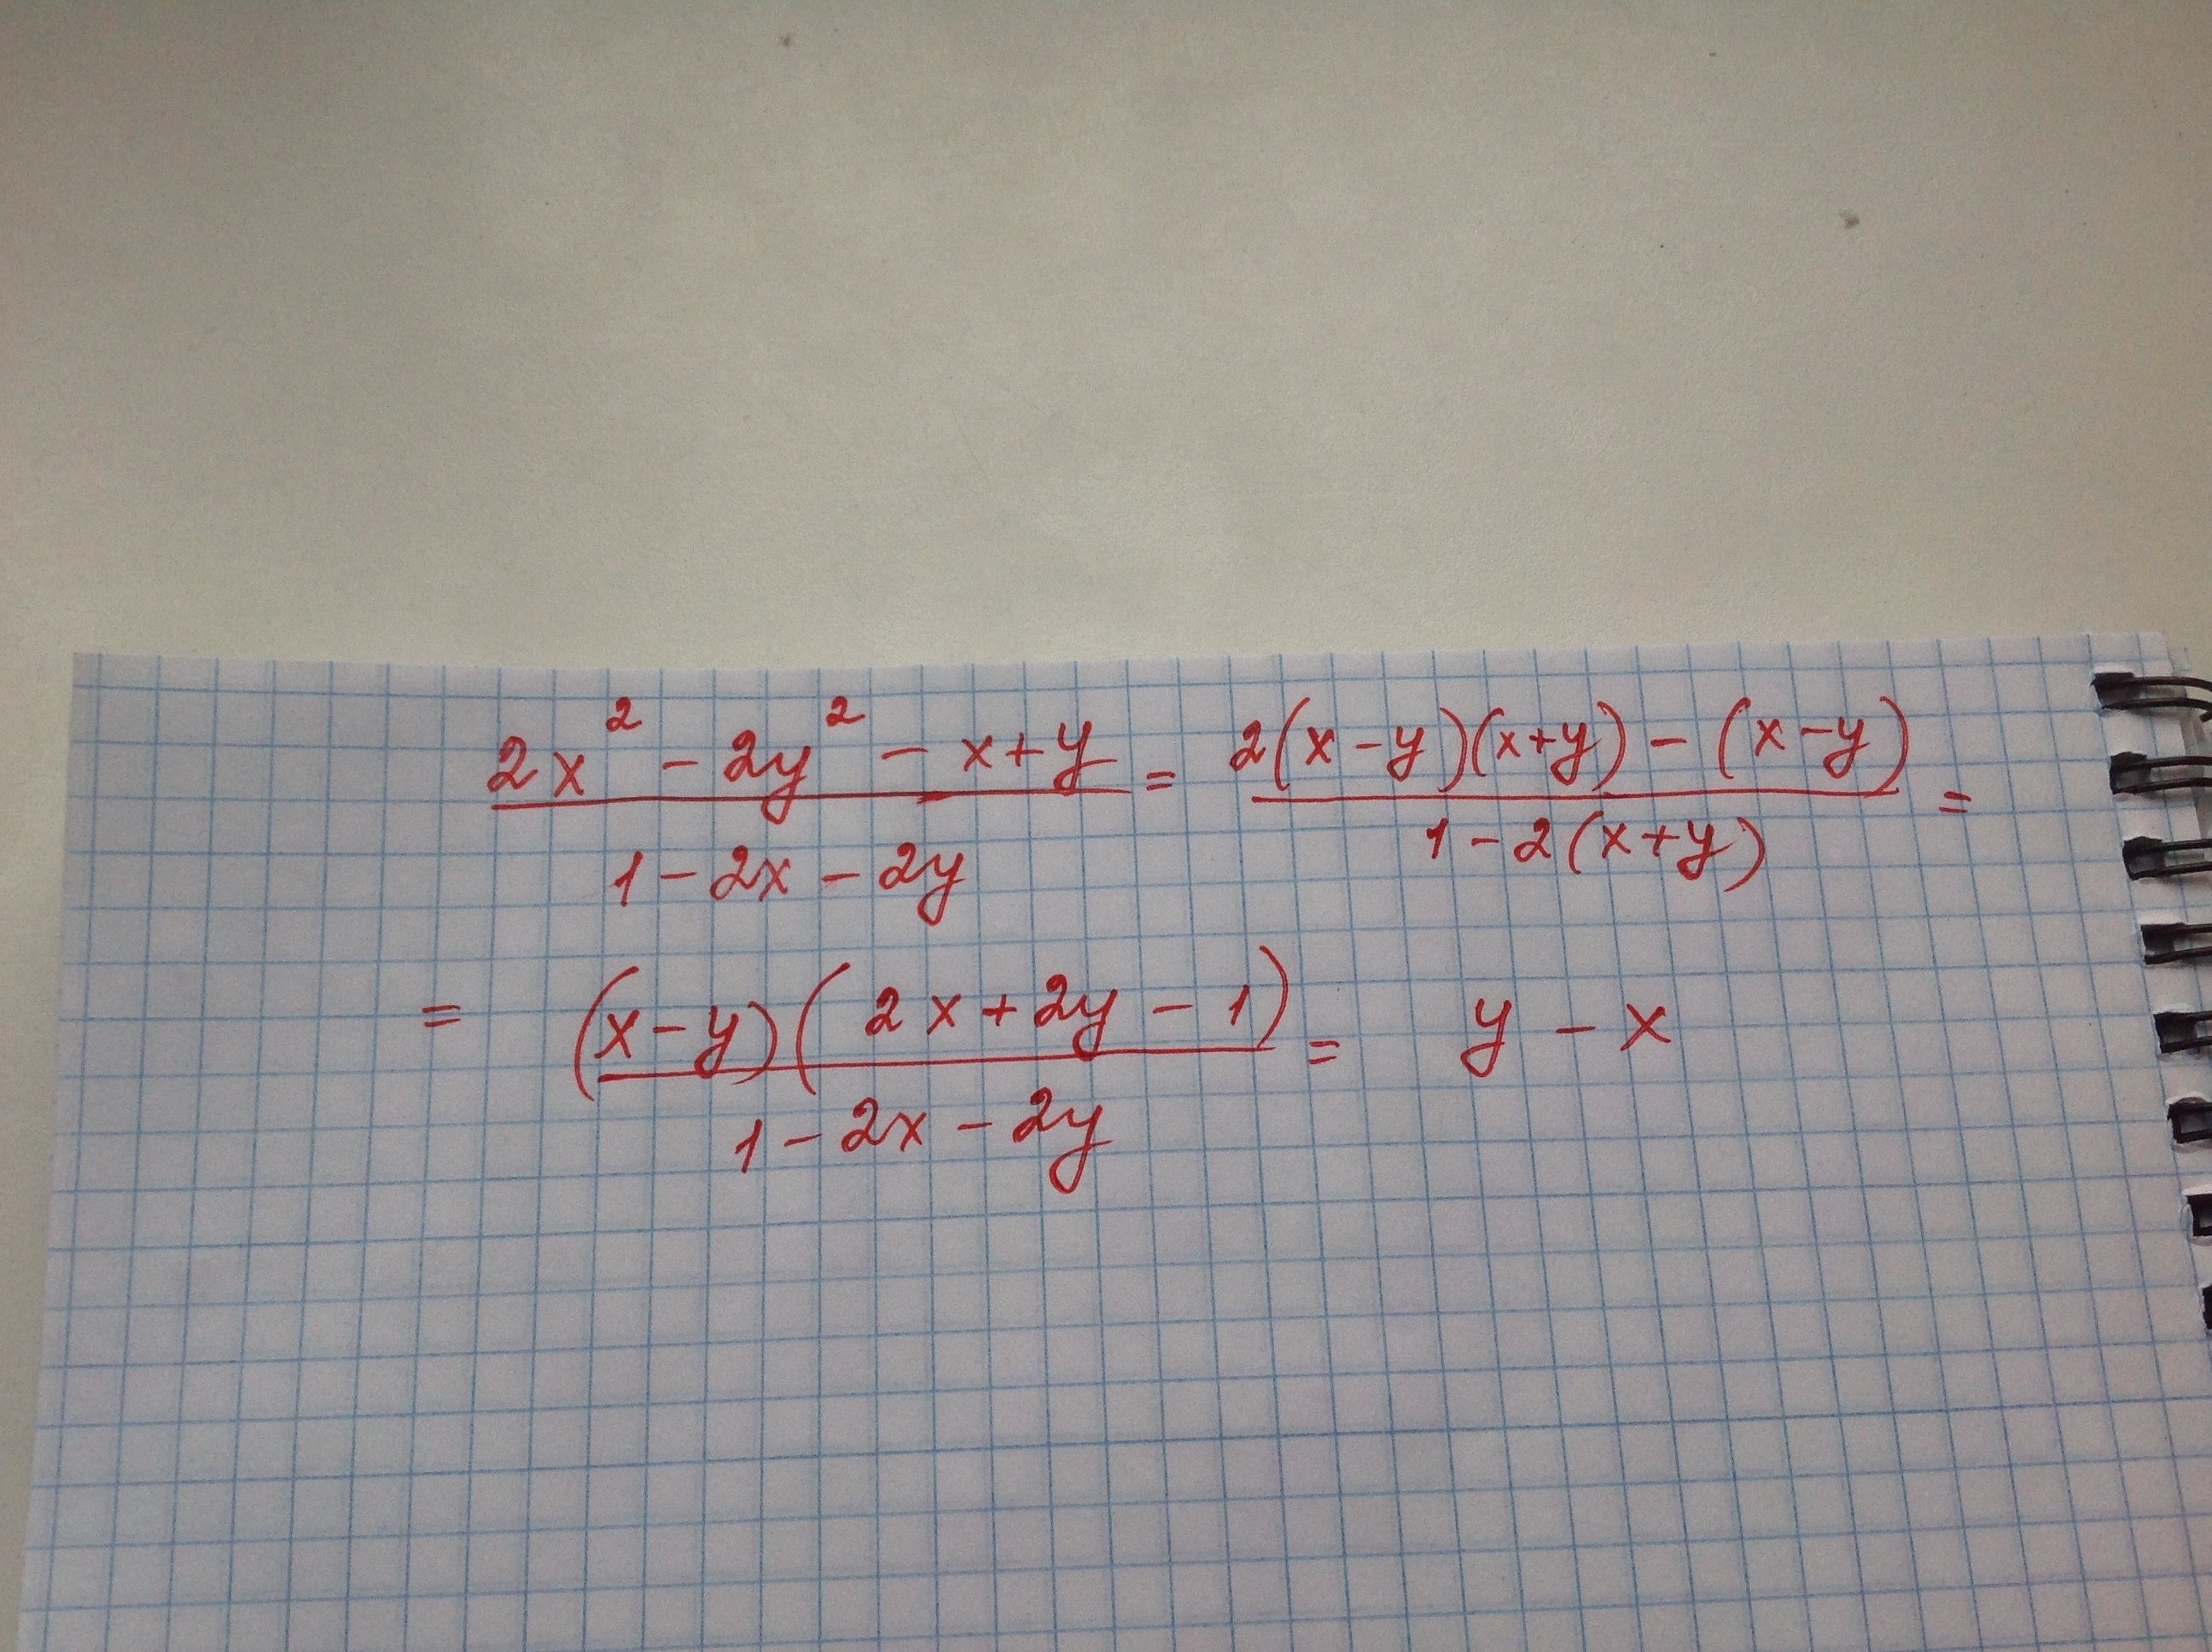 (2x² - 2y² - x + y) / (1 - 2x - 2y) = (2(x - y)(x + y) - (x - y)) / (1 - 2(x + y)) =
= ((x - y)(2x + 2y - 1)) / (1 - 2x - 2y) = y - x